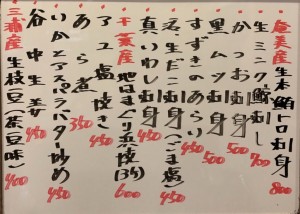 奄美産 生本鮪トロ刺身 800
・生ミンク鯨刺し 700
・かつお刺身 500
・黒ムツ刺身 500
・すずきのあらい 450
・活生だこ刺身(ごま塩) 450
・真いわし刺身 450
千葉産 地はまぐり浜焼(3ケ) 600
・アユ塩焼き 450
・あら煮 350
・いかとアスパラバター炒め 450
・谷中生姜 450
三浦産 生枝豆(茶豆味) 400